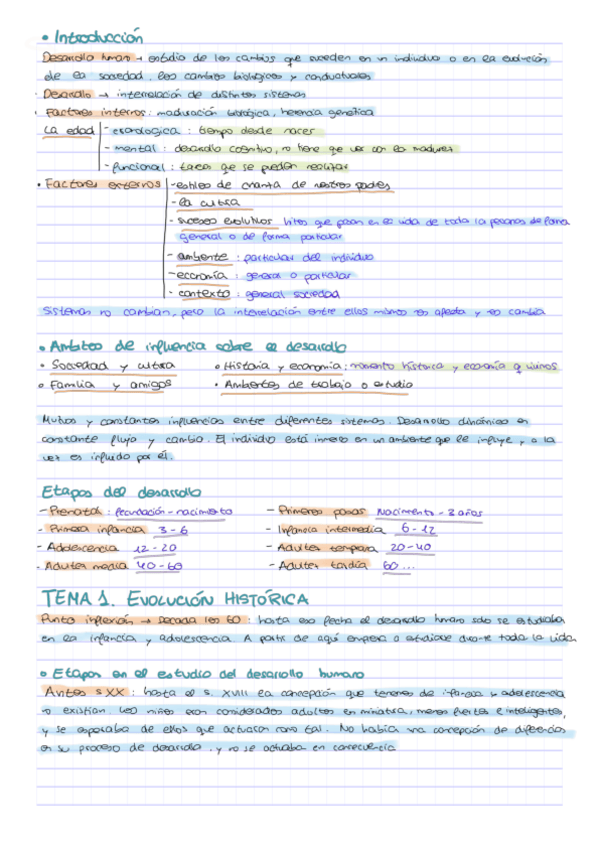 • Introducción
Desarrollo humano → estudio de los cambios que suceden en un individuo o en la evolución
de la sociedad, los cambios biológicos y conductuales
· Desarrollo → interrelación de distintos sistemas
· Factores internos: maduración biológica, herencia genética
La edad - cronologica : tiempo desde nacer
- mental : desarrollo cognitivo, no tiene que ver con la madurez
- funcional : tareas que se pueden realizar
• Factores externos - estilos de crianza de nuestros padres
- la cultura
- sucesos evolutivos hitos que pasan en la vida de toda la personas de forma
general o de forma particular
- ambiente : particular del individuo
- economía : general o particular
- contexto : general sociedad
Sistemas no cambian, pero la interrelación entre ellos mismos nos afecta y nos cambia
• Ambitos de influencia sobre el desarrollo
• Sociedad y cultura o Historia y economía: momento historica y economía q vivimos
o Familia y amigos • Ambientes de trabajo o estudio
Mutuas y constantes influencias entre diferentes sistemas. Desarrollo dinámico en
constante flujo y cambio. El individuo está inmerso en un ambiente que le influye, y a la
vez es influido por él.
Etapas del desarrollo
- Prenatal : fecundación - nacimiento - Primeros pasos Nacimiento - 3 años
- Primera infancia 3 - 6 - Infancia intermedia 6 - 12
- Adolescencia 12 - 20 - Adultez temprana 20 - 40
- Adultez media 40 - 60 - Adultez tardía 60 ...
TEMA 1. EVOLUCIÓN HISTÓRICA
Punto inflexión → Decada los 60 : hasta esa fecha el desarrollo humano solo se estudiaba
en la infancia y adolescencia. A partir de aquí empieza a estudiarse durante toda la vida.
• Etapas en el estudio del desarrollo humano
Antes s XX : hasta el s. XVIII la concepción que tenemos de infancia y adolescencia
no existían. Los niños eran considerados adultos en miniatura, menos fuertes e inteligentes,
y se esperaba de ellos que actuaran como tal. No había una concepción de diferencias
en su proceso de desarrollo, y no se actuaba en consecuencia